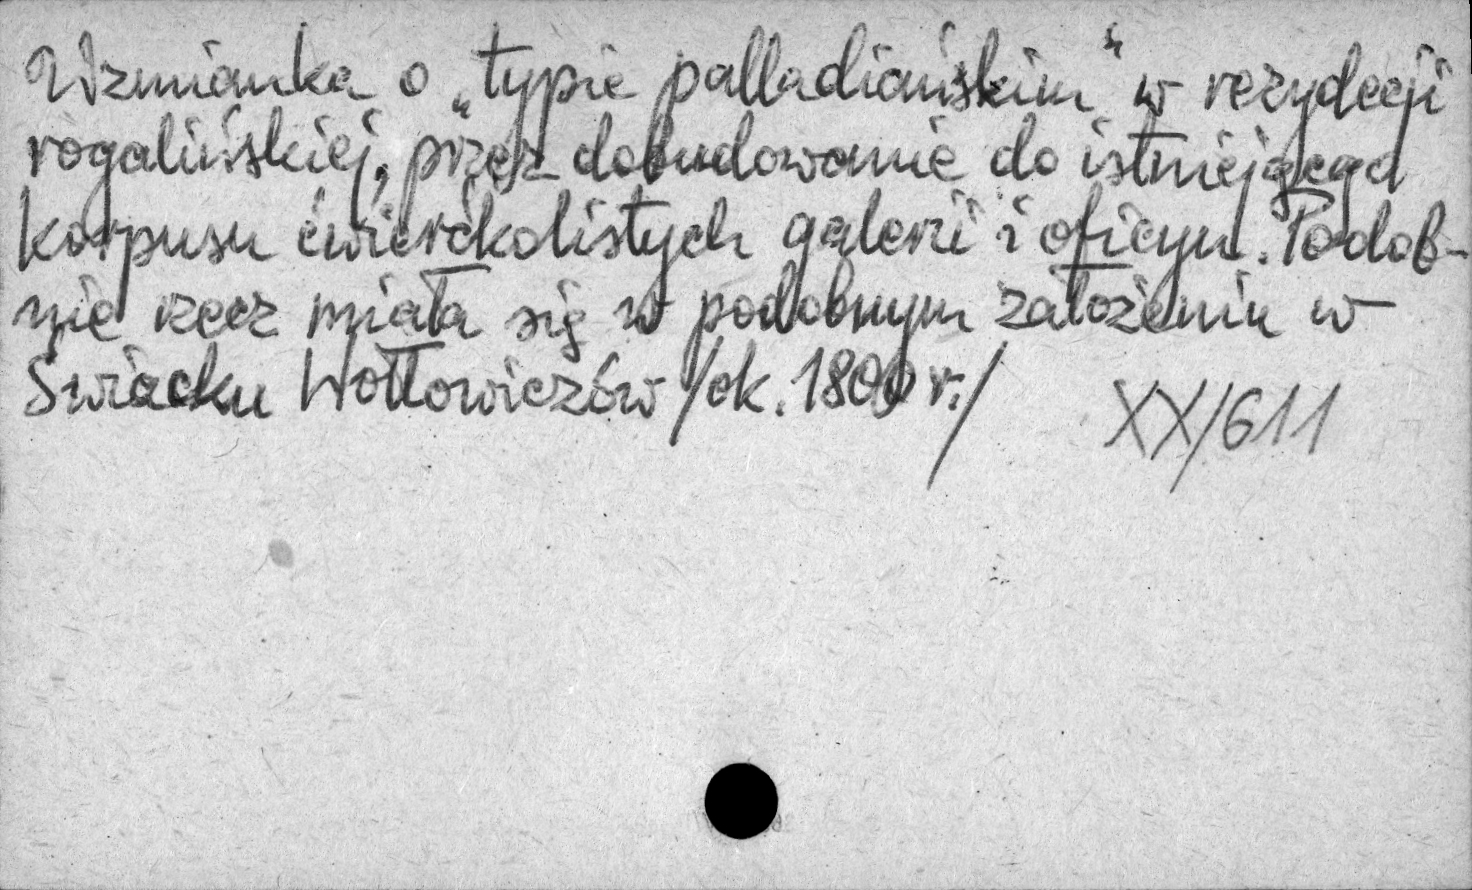 Wzmianka o „typie palladiańskim” w rezydecji
rogalińskiej, przez dobudowanie do istniejącego
korpusu ćwierćkolistych galerii i oficyn. Podob-
nie rzecz miała się w podobnym założeniu w
Swiacku Wołłowiczów /ok. 1800 r./
XX/611